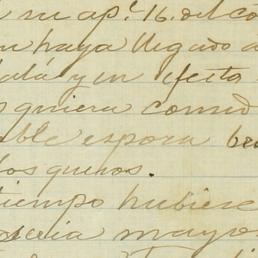 su apl. 16. del co
haya llegado a
y en efecto
quiera comod
ble espora be
los quesos.
tiempo hubiese
seria mayor